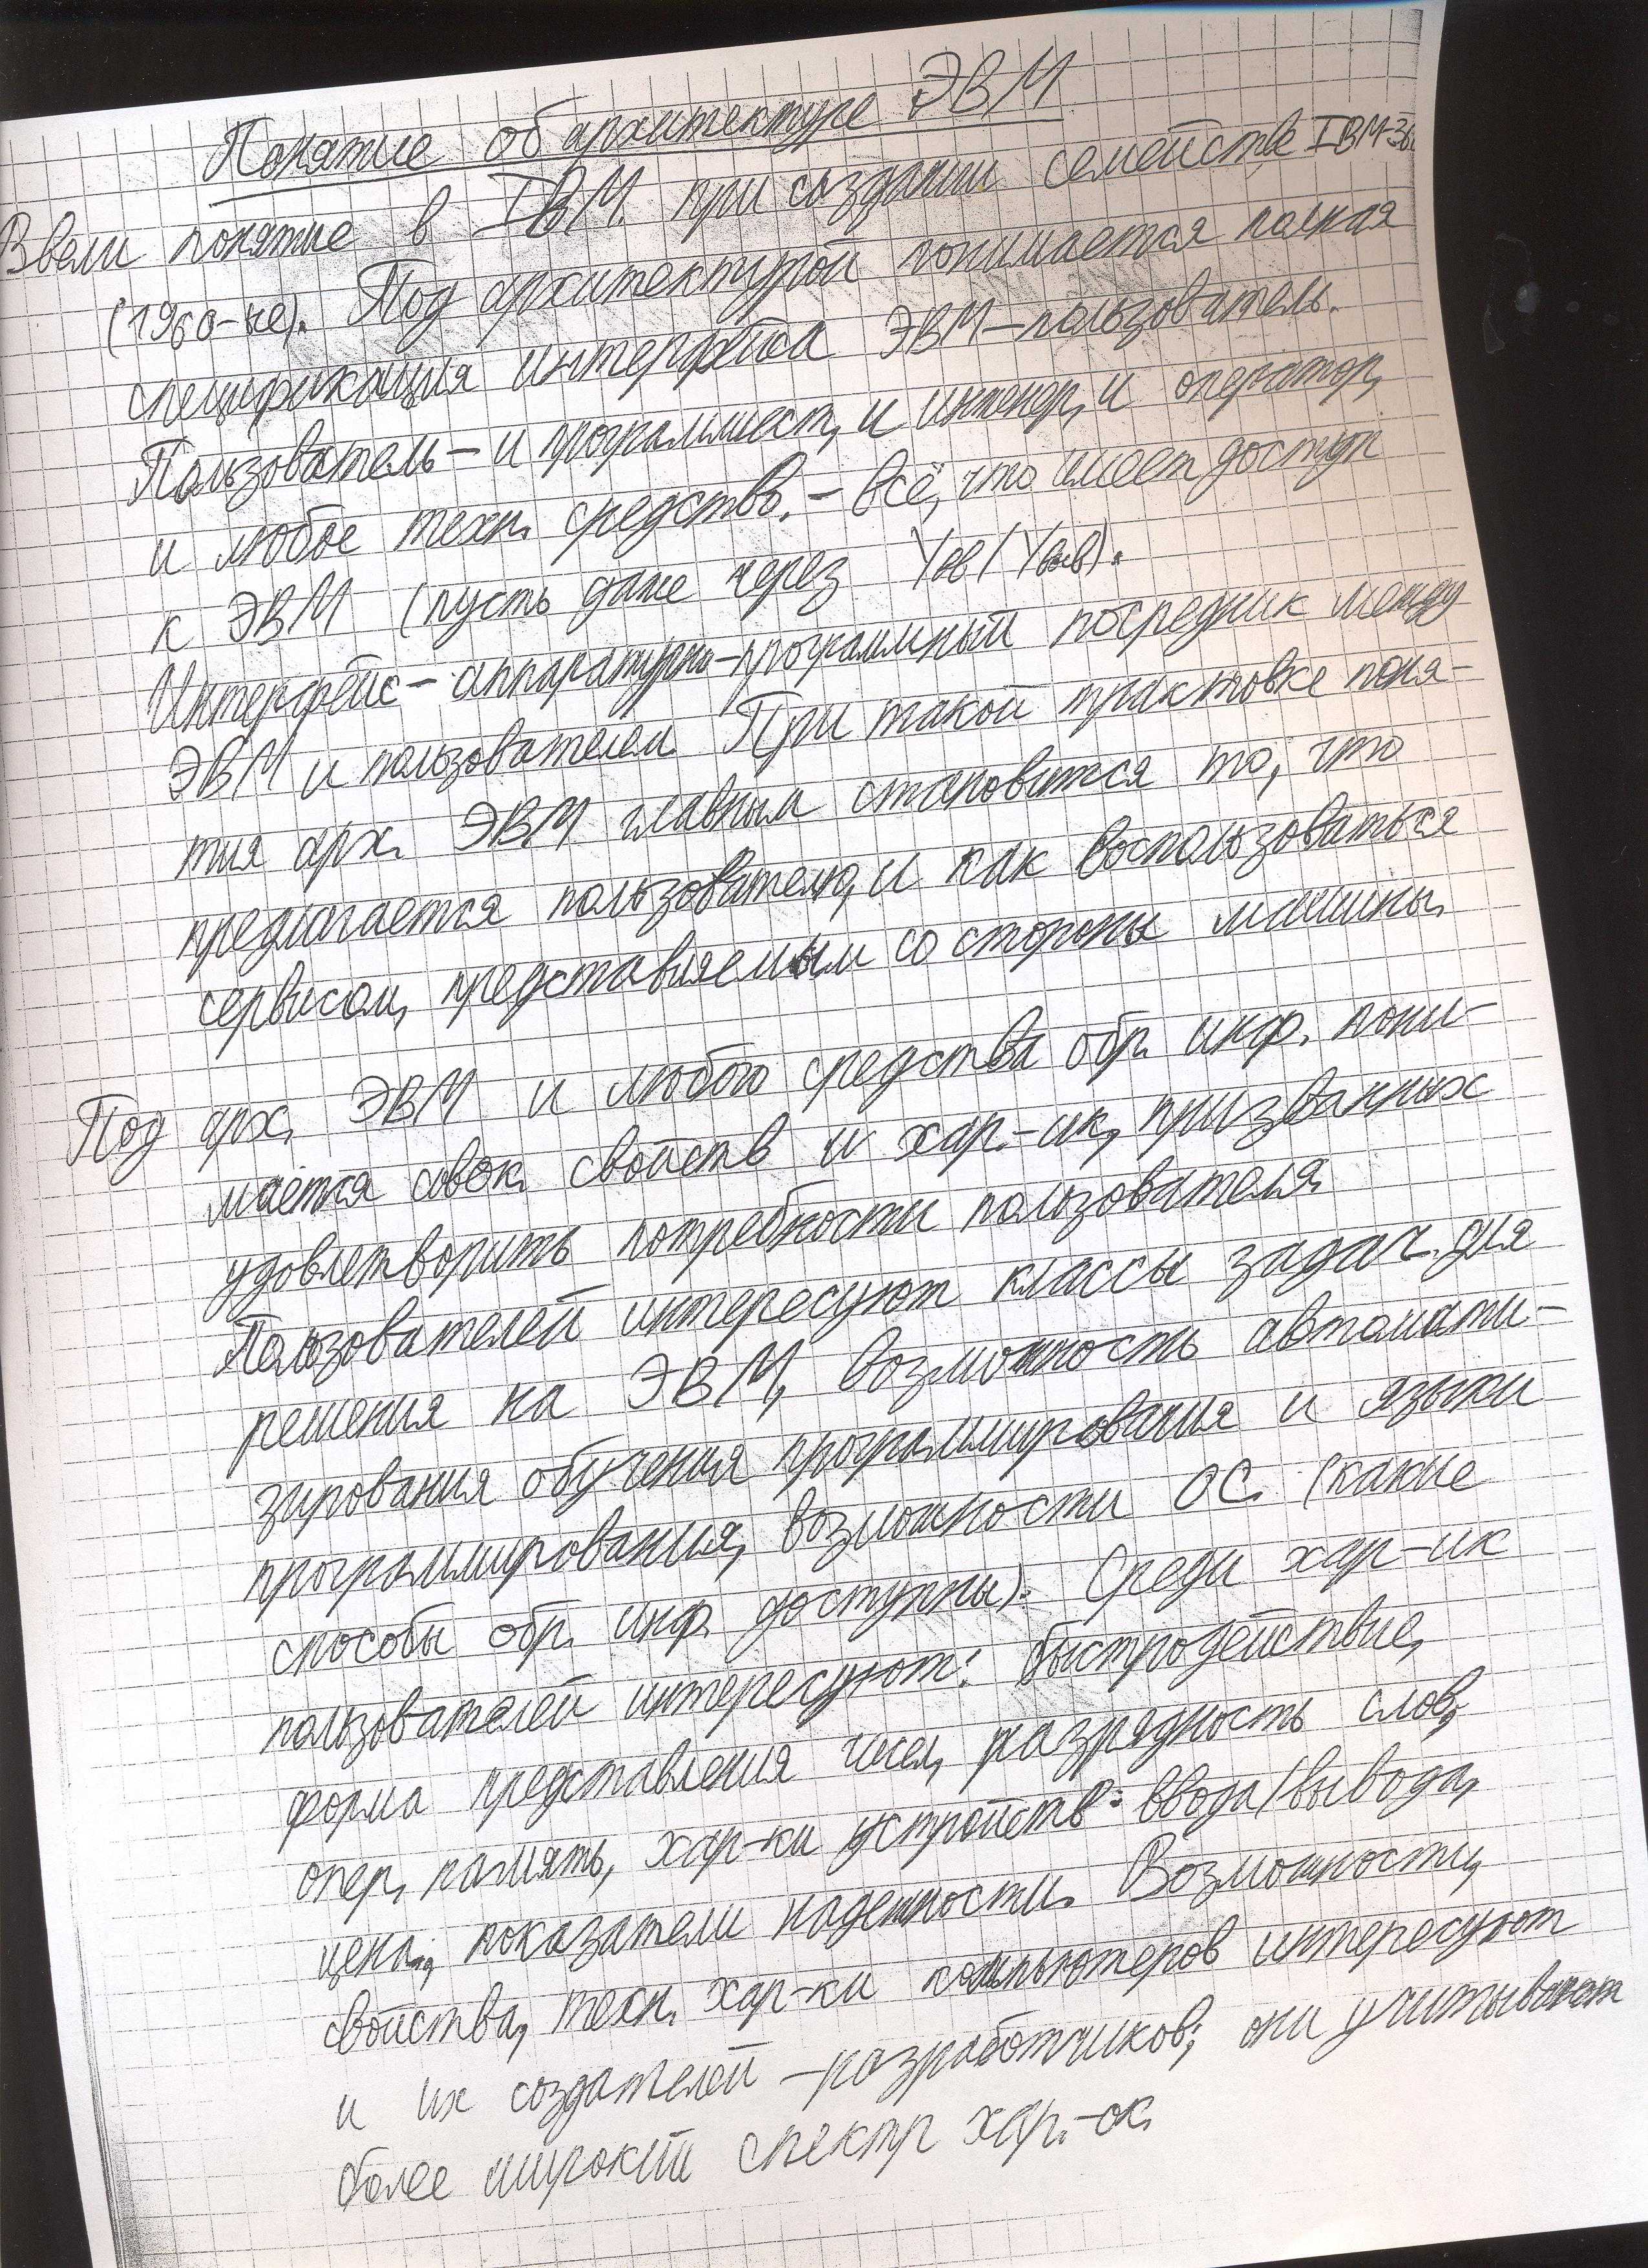 Понятие об архитектуре ЭВМ
Ввели понятие в IBM при создании семейств IBM-36
(1960-ые). Под архитектурой понимается полная
спецификация интерфейса ЭВМ–пользователь.
Пользователь – и программист, и инженер, и оператор,
и любое техн. средство. – всё, что имеет доступ
к ЭВМ (пусть даже через Увв/Увыв).
Интерфейс – аппаратурно-программный посредник между
ЭВМ и пользователем При такой трактовке поня-
тия арх. ЭВМ главным становится то, что
предлагается пользователю, и как воспользоваться
сервисом, представляемым со стороны машины.
Под арх. ЭВМ и любого средства обр. инф. пони-
мается совок. свойств и хар.-ик, призванных
удовлетворить потребности пользователя.
Пользователей интересуют классы задач для
решения на ЭВМ, возможность автомати-
зирования обучения программирования и языки
программирования, возможности ОС. (какие
способы обр. инф. доступны). Среди хар-ик
пользователей интересуют: быстродействие,
форма представления чисел, разрядность слов,
опер. память, хар-ки устройств ввода/вывода,
цена, показатели надежности. Возможности,
свойства, техн. хар-ки компьютеров интересуют
и их создателей – разработчиков; они учитывают
более широкий спектр хар.-ок.